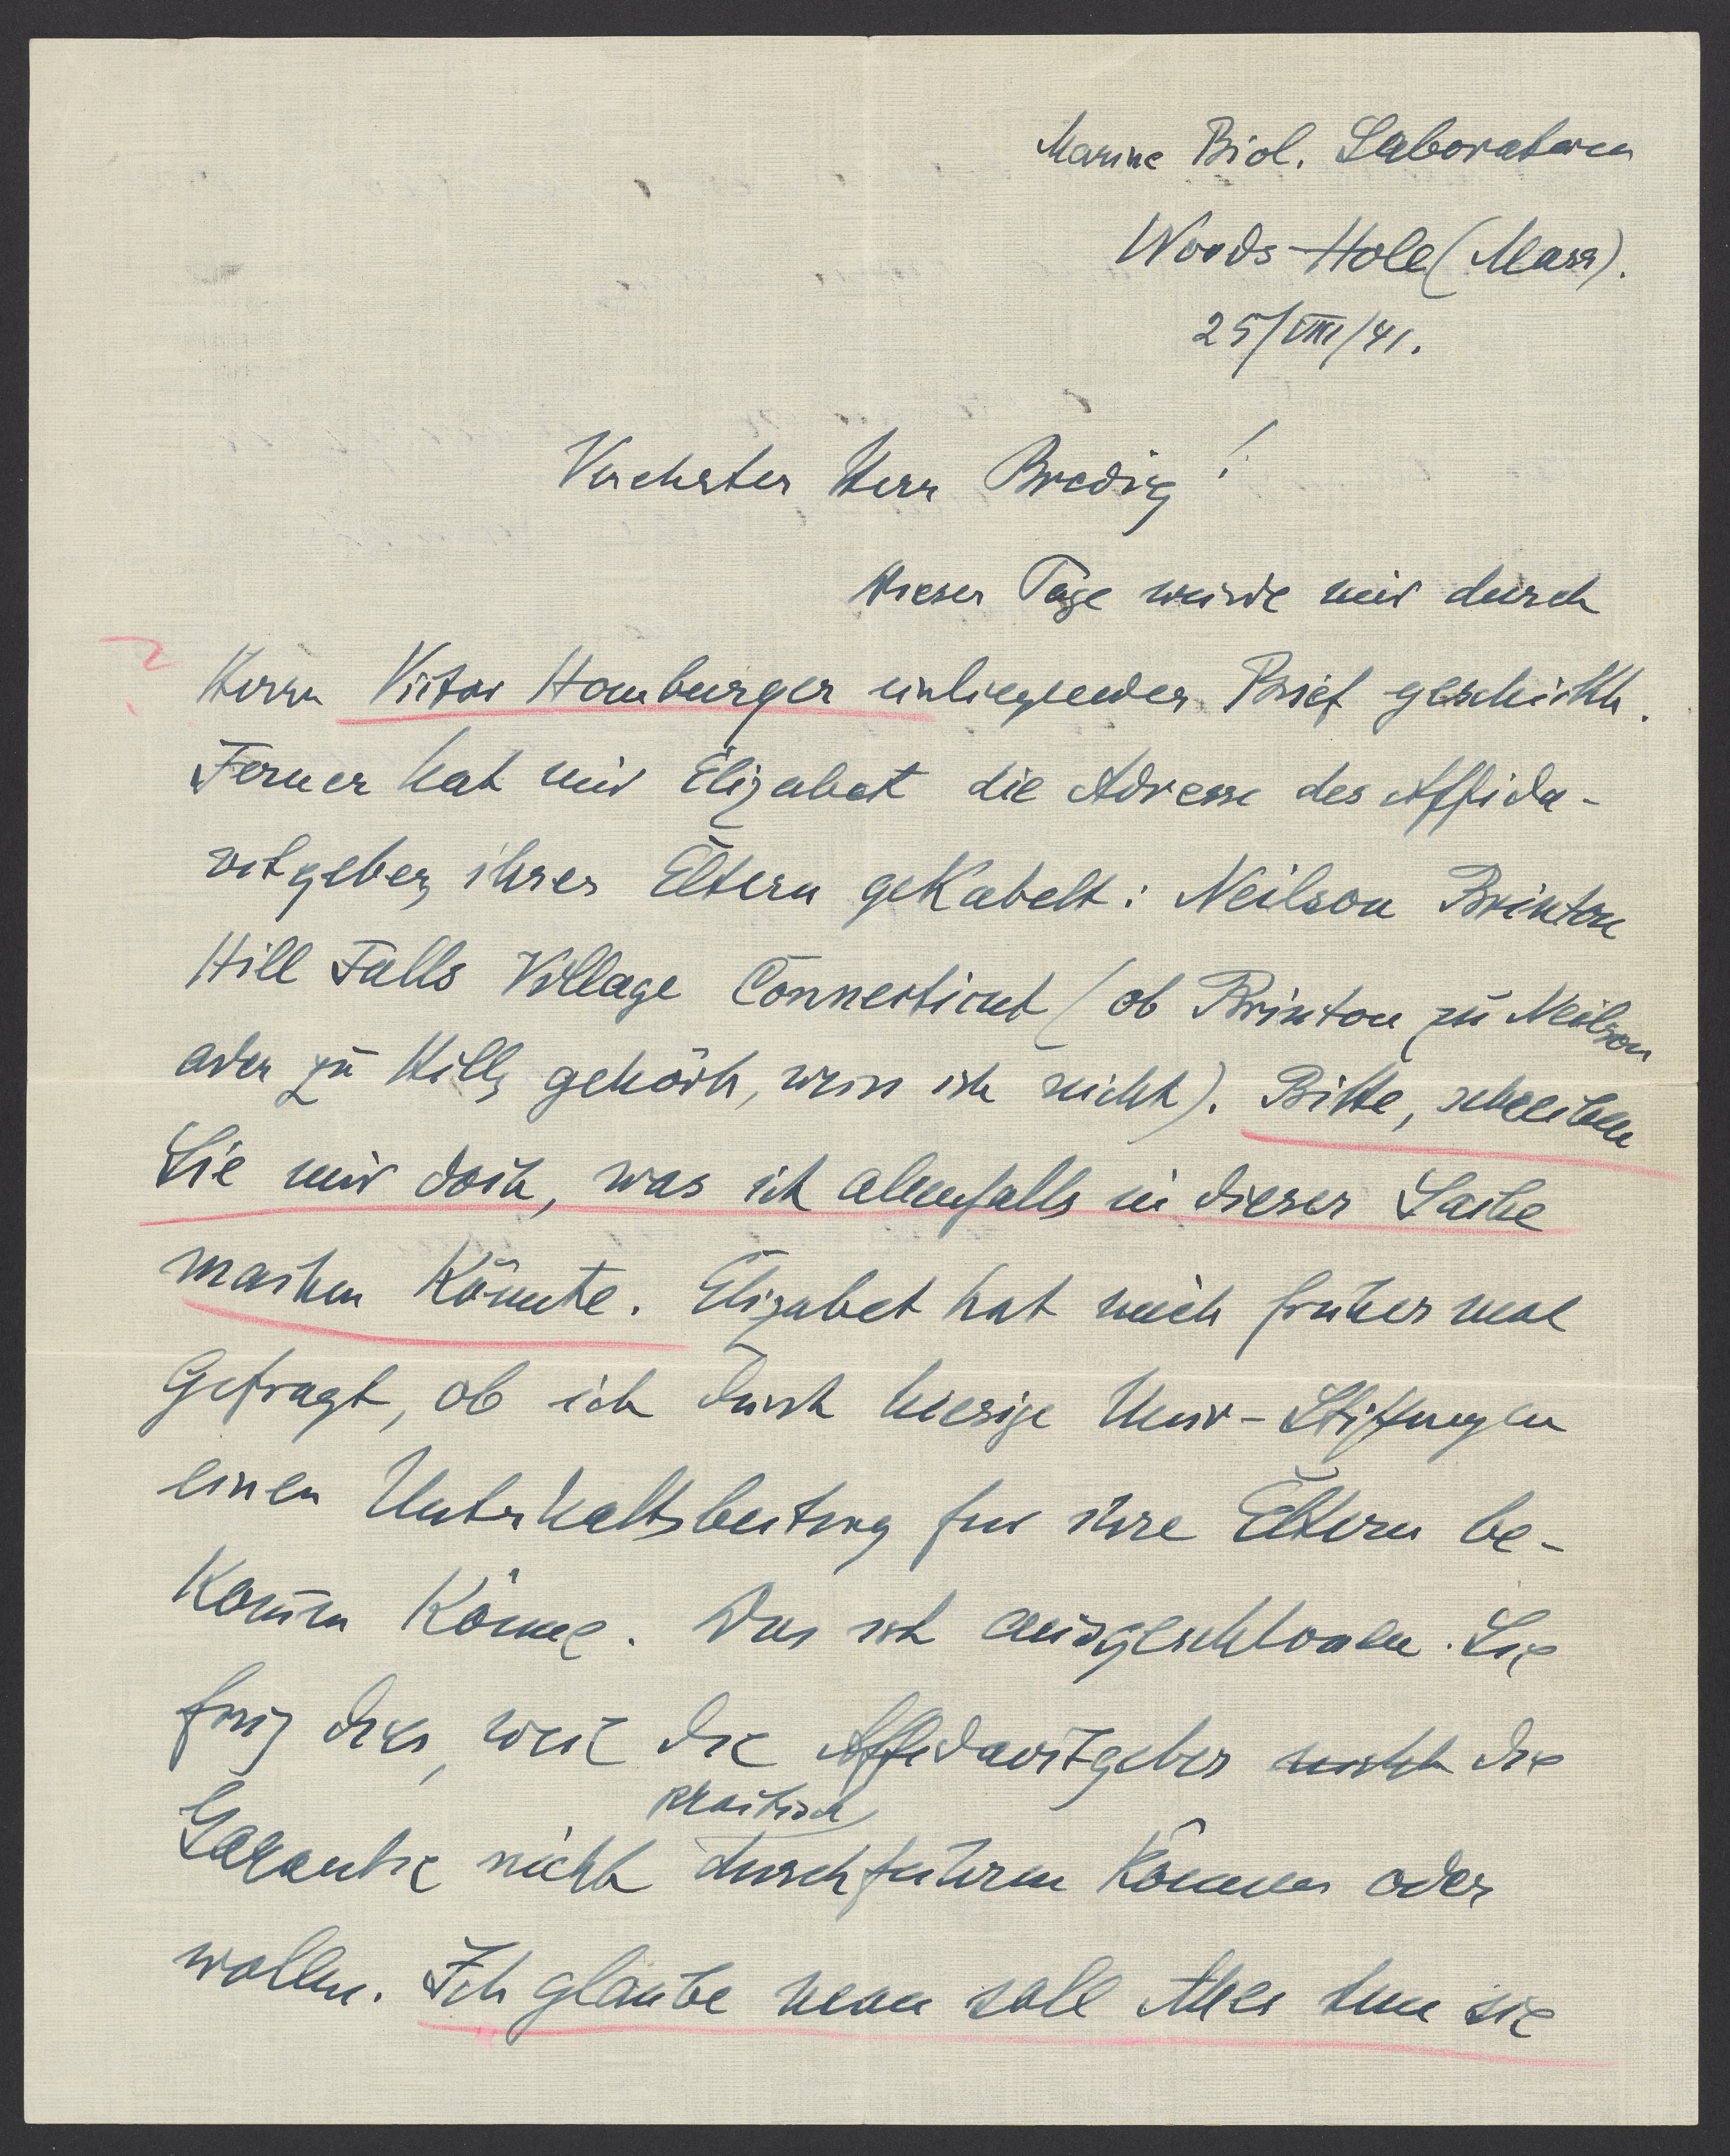 Marine Biol. Laboratorium
Woods-Hole (Mass).
25/VIII/41.
Verehrter Herr Bredig!
Dieser Tage wurde mir durch
Herrn Victor Homburger einliegender Brief geschickt.
Ferner hat mir Elizabet die Adresse des Affida-
vitgebers ihrer Eltern gekabelt: Neilson Brinton
Hill Falls Village Connecticut (ob Brinton zu Neilson
oder zu Hill gehört, weiss ich nicht). Bitte, schreiben
Sie mir doch, was ich allenfalls in dieser Sache
machen könnte. Elizabet hat mich früher mal
gefragt, ob ich durch hiesige Univ-Stiftungen
einen Unterhaltsbeitrag für ihre Eltern be-
kommen könne. Das ist ausgeschlossen. Sie
frug dies, weil die Affidavitgeber nicht die
praktisch
Garantie nicht durchführen können oder
wollen. Ich glaube man soll Alles tun die